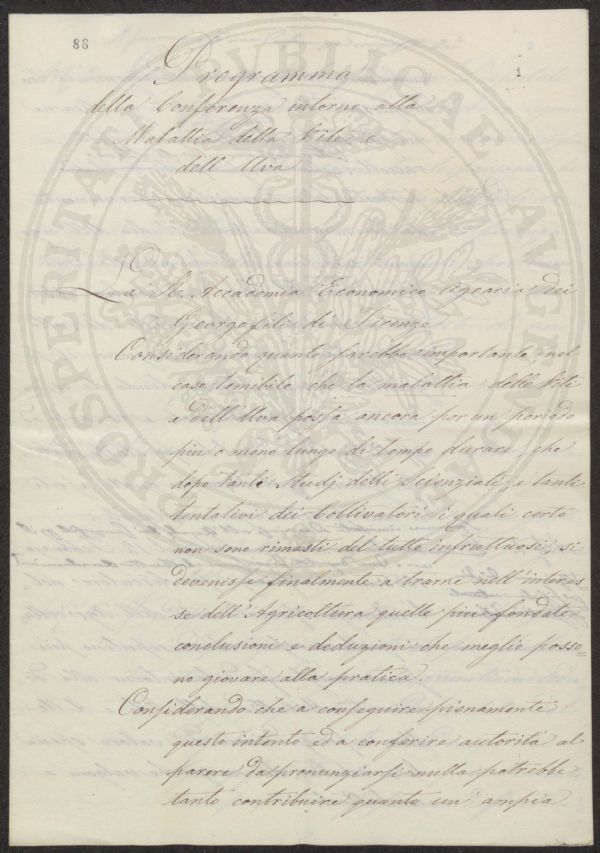 88
1
Programma
della Conferenza intorno alla
Malattia della Vite e
dell' Uva
La R. Accademia Economico Agraria dei
Georgofili di Firenze
Considerando quanto sarebbe importante, nel
caso temibile che la malattia delle Viti
e dell' Uva possa ancora per un periodo
più o meno lungo di tempo durare, che
dopo tanti Studj delli Scienziati, e tanti
tentativi dei Coltivatori i quali certo
non sono rimasti del tutto infruttuosi, si
devenisse finalmente a trarne nell' interes
se dell' Agricoltura quelle più fondate
conclusioni e deduzioni che meglio posso=
no giovare alla pratica.
Considerando che a conseguire pienamente
questo intento ed a conferire autorità al
parere da pronunziarsi nulla potrebbe
tanto contribuire quanto un' ampia
PROSPERITATI PVBLICAE AVGENDAE